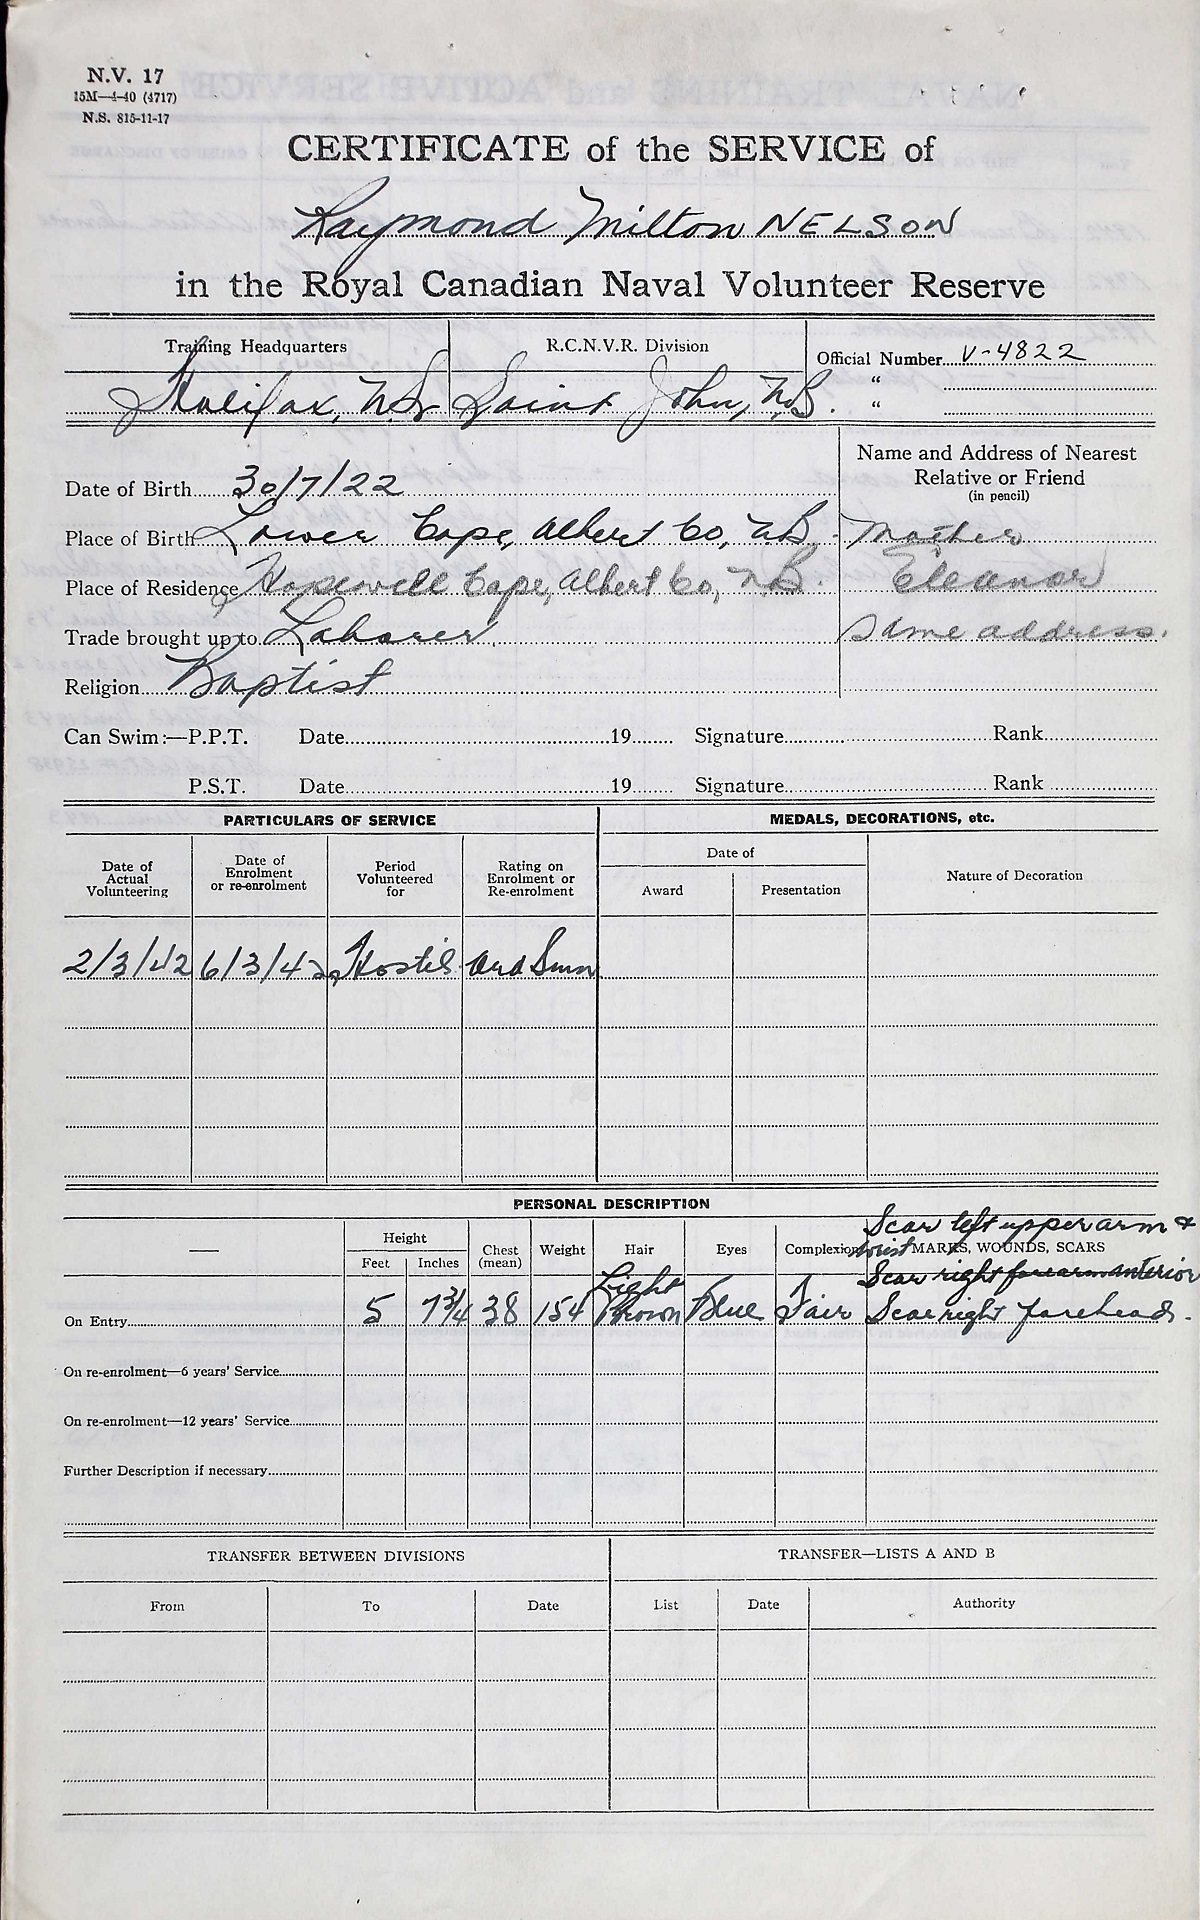 N.V. 17
15M—4-40 (4717)
N.S. 815-11-17
CERTIFICATE of the SERVICE of
Raymond Milton NELSON
in the Royal Canadian Naval Volunteer Reserve
Training Headquarters R.C.N.V.R. Division Official Number V-4822
"
Halifax, N.S. Saint John, N.B. "
Name and Address of Nearest Relative or Friend (in pencil)
Date of Birth 30/7/22
Place of Birth Lower Cape, Albert Co, N.B. Mother
Place of Residence Hopewell Cape, Albert Co, N.B. Eleanor
Trade brought up to Laborer Same address.
Religion Baptist
Can Swim:—P.P.T. Date 19 Signature Rank
P.S.T. Date 19 Signature Rank
PARTICULARS OF SERVICE MEDALS, DECORATIONS, etc.
Date of Actual Volunteering Date of Enrolment or re-enrolment Period Volunteered for Rating on Enrolment or Re-enrolment Date of Award Presentation Nature of Decoration
2/3/42 6/3/42 Hostil Ord Smn
PERSONAL DESCRIPTION
Height Feet Inches Chest (mean) Weight Hair Eyes Complexion MARKS, WOUNDS, SCARS
Scar left upper arm &
wrist
Scar right forearm anterior
On Entry 5 7 3/4 38 154 Light Brown Blue Fair Scar right forehead.
On re-enrolment—6 years' Service
On re-enrolment—12 years' Service
Further Description if necessary
TRANSFER BETWEEN DIVISIONS TRANSFER—LISTS A AND B
From To Date List Date Authority